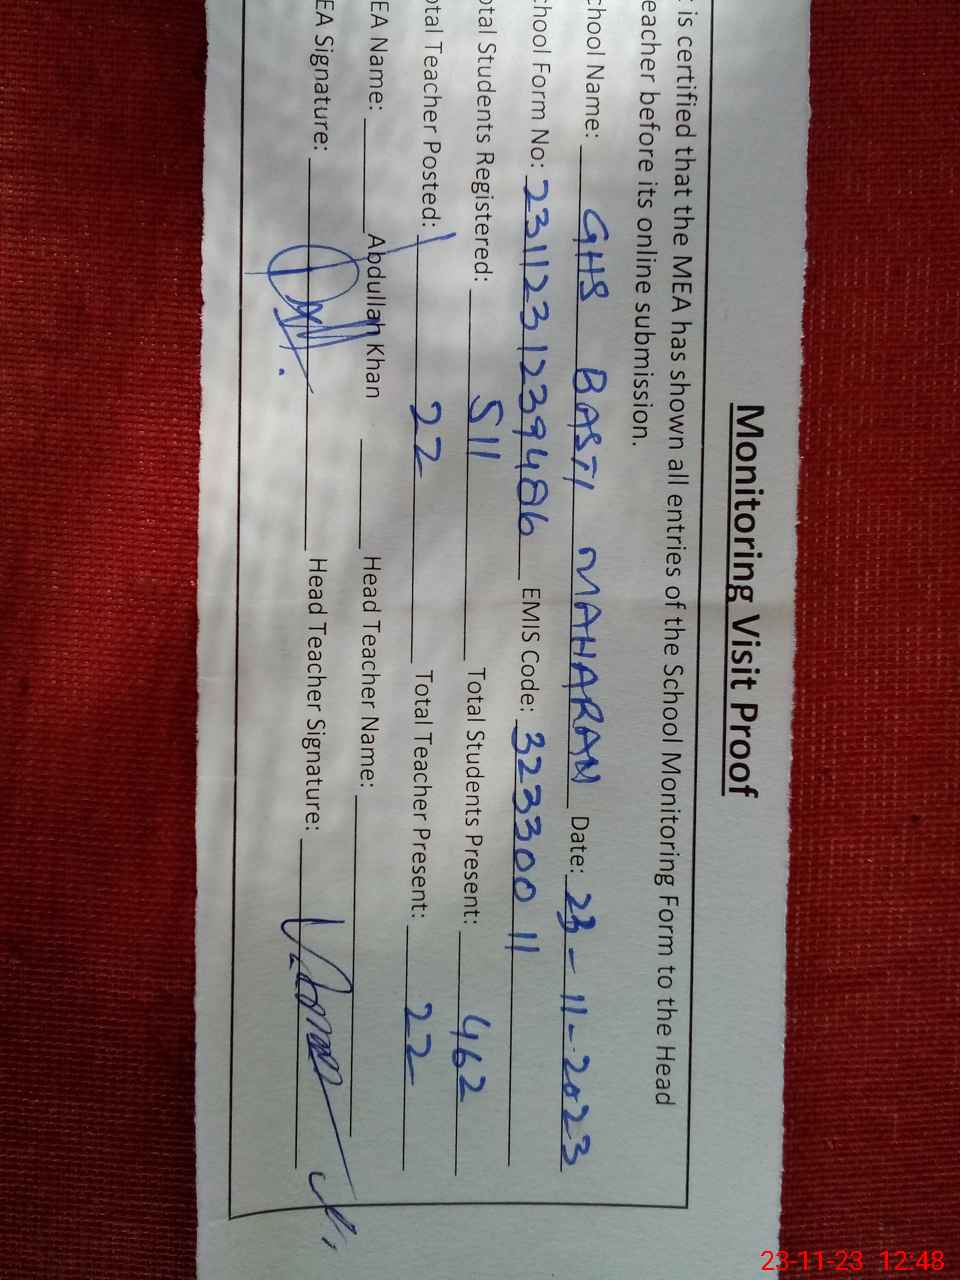 Monitoring Visit Proof
is certified that the MEA has shown all entries of the School Monitoring Form to the Head
eacher before its online submission.
chool Name: GHS BASTI MAHARAN Date: 23-11-2023
chool Form No: 2311231239486 EMIS Code: 32330011
otal Students Registered: 511 Total Students Present: 462
otal Teacher Posted: 22 Total Teacher Present: 22
EA Name: Abdullah Khan Head Teacher Name:
EA Signature: Head Teacher Signature:
23-11-23 12:48